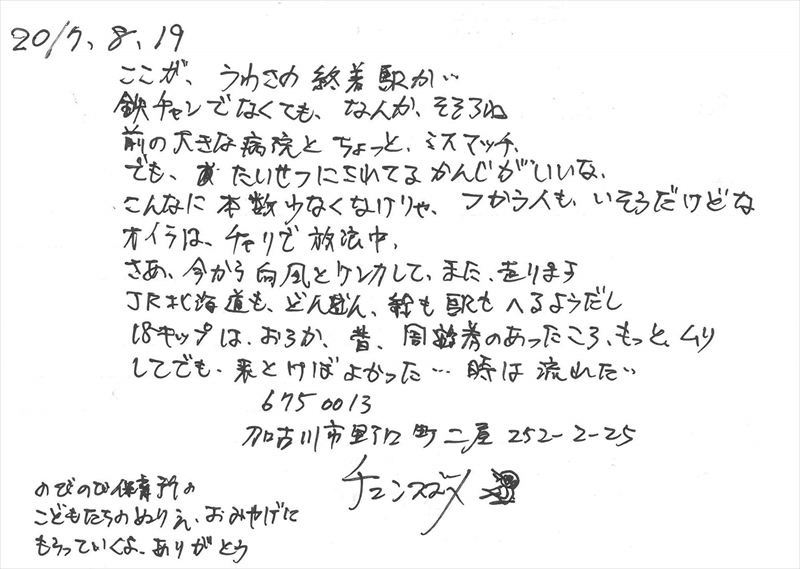 2017, 8, 19
ここが、うわさの終着駅か…
鉄チャンでなくても、なんか、そそるね
前の大きな病院とちょっと、ミスマッチ、
でも、たいせつにされてるかんじがいいな、
こんなに本数少なくなけりゃ、つかう人も、いそうだけどな
オイラは、チャリで放浪中、
さあ、今から向風とケンカして、また、走ります
JR北海道も、どんどん、線も駅もへるようだし
18キップは、おろか、昔、周遊券のあったころ、もっと、ムリ
してでも、来とけばよかった…時は流れた…
675 0013
加古川市野口町二屋 252-2-25
のびのび保育所の
こどもたちのぬりえ、おみやげに
もらっていくよ、ありがとう